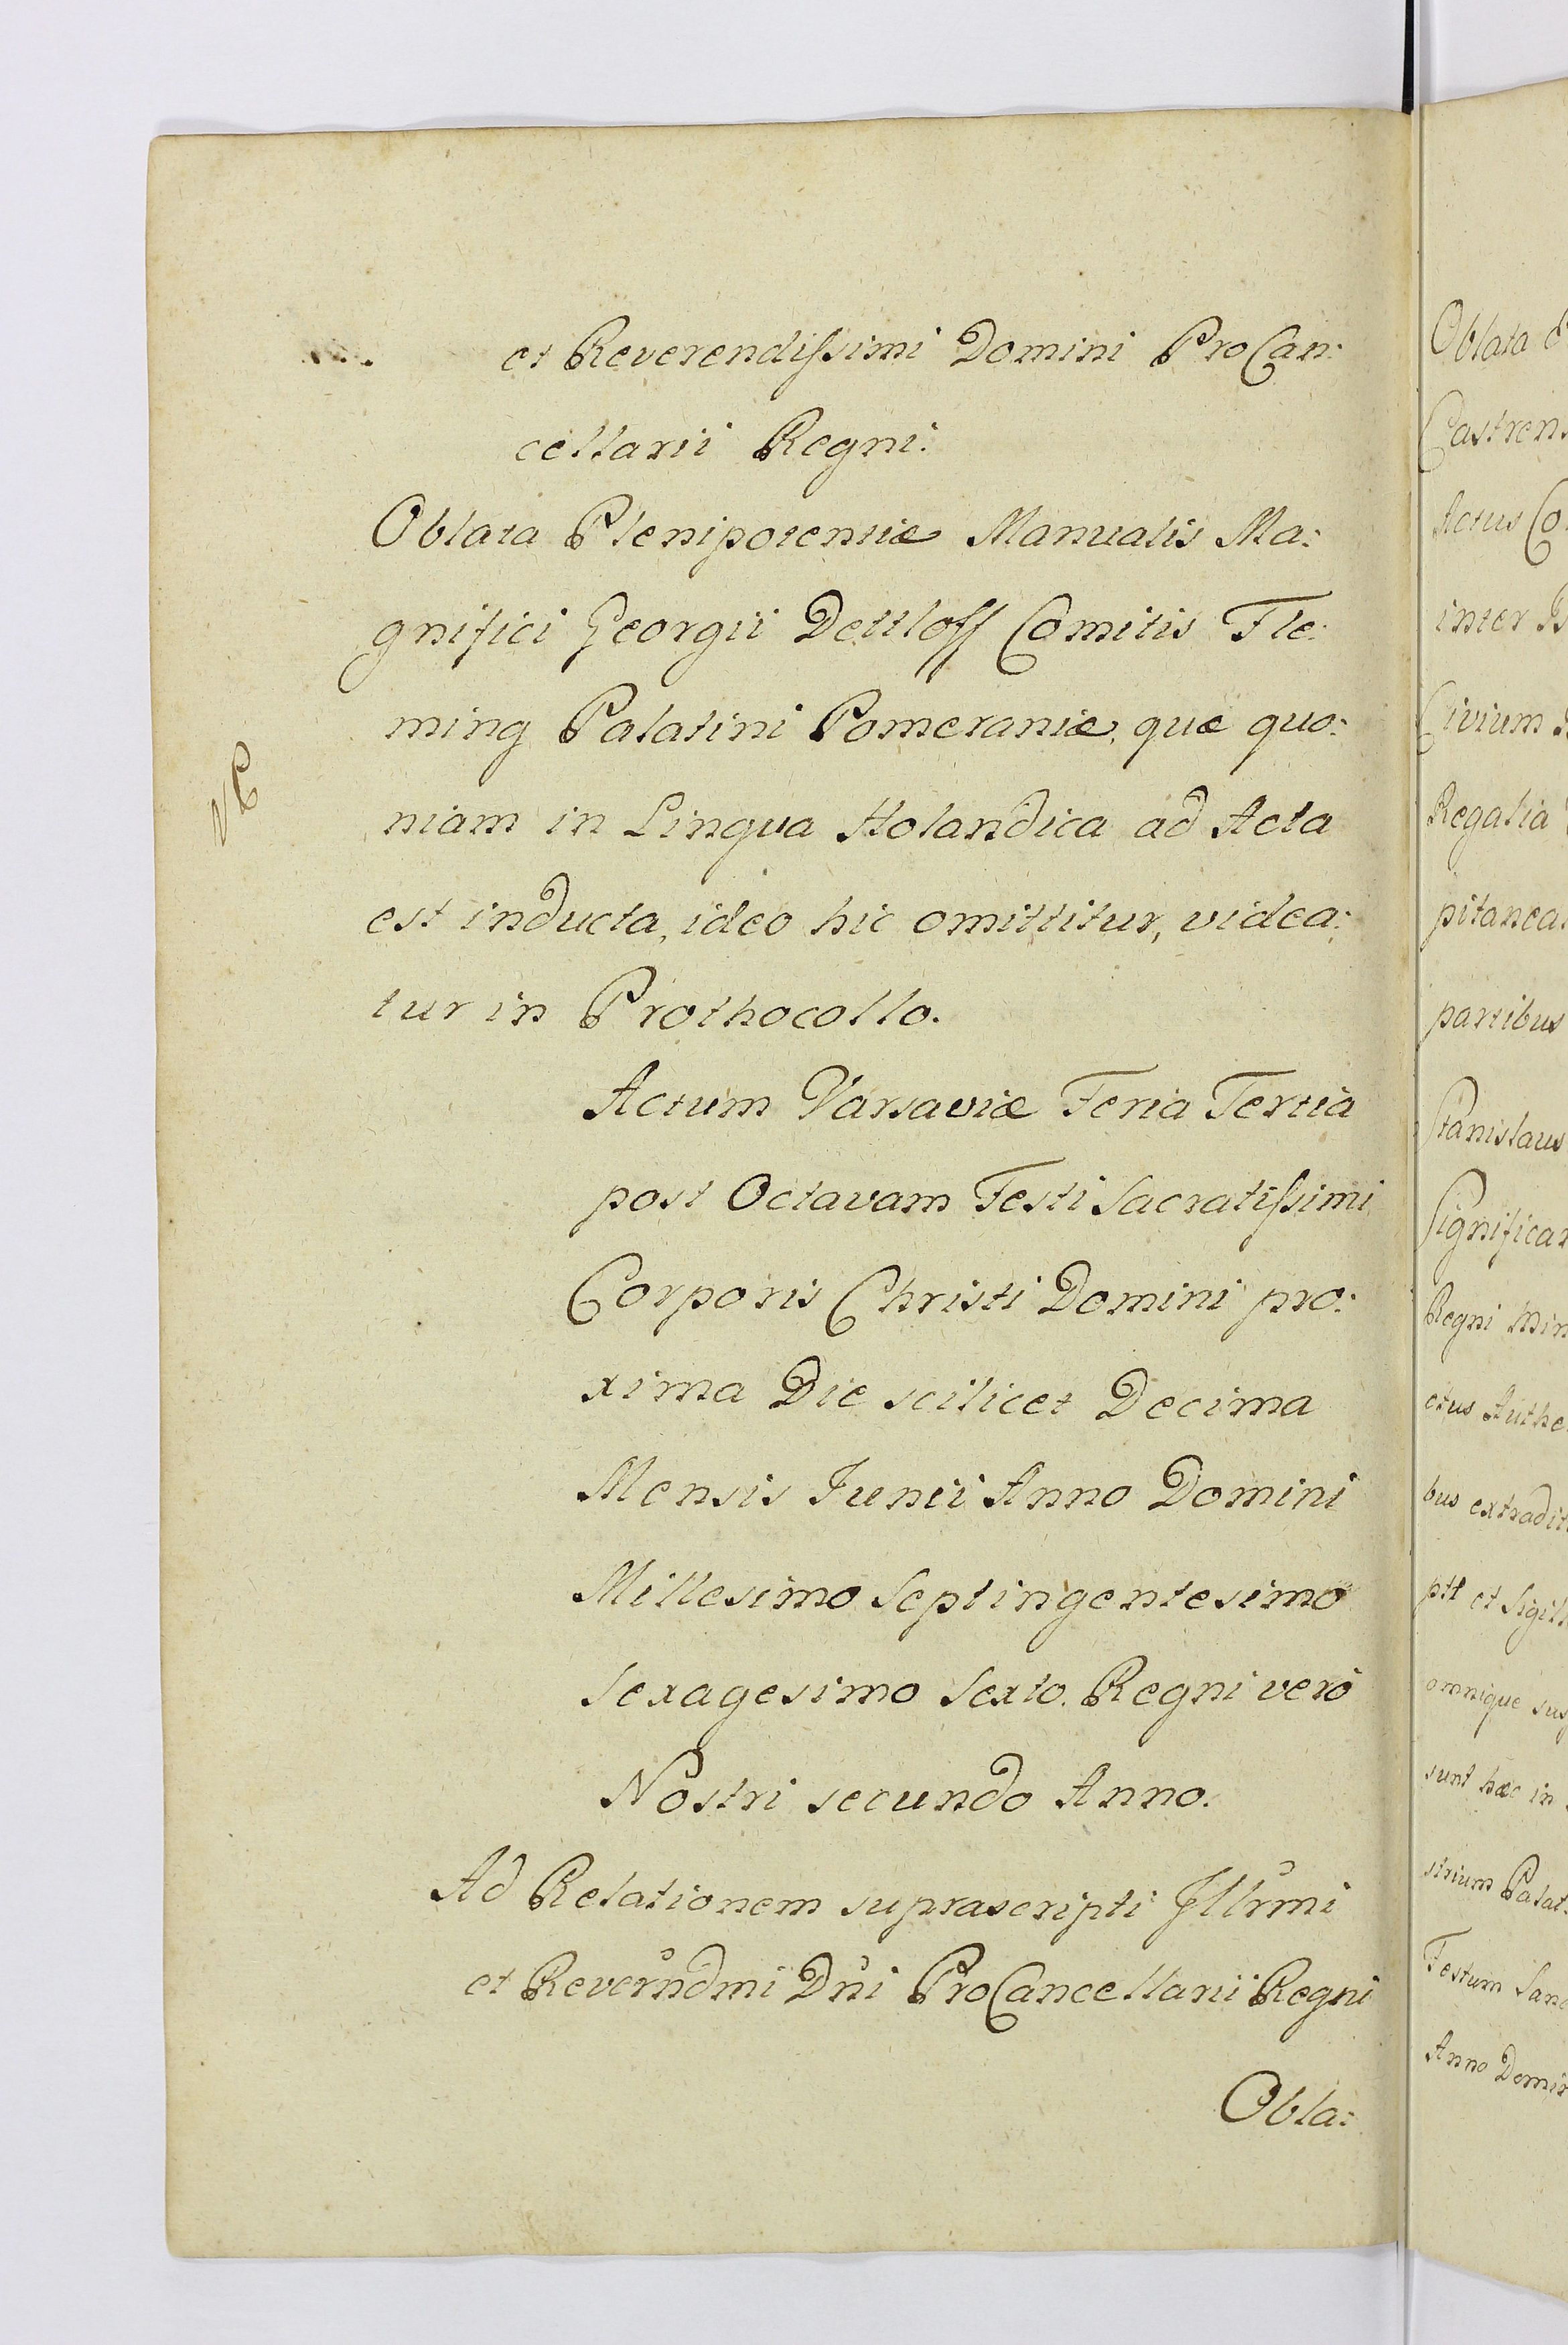 et Reverendissimi Domini ProCan:
cellarii Regni.
Oblata Plenipotentiæ Manualis Ma:
gnifici Georgii Dettloff Comitis Fle:
ming Palatini Pomeraniæ, quæ quo:
niam in Lingua Holandica ad Acta
est inducta, ideo hic omittitur, videa:
tur in Prothocollo.
Actum Varsaviæ Feria Tertia
post Octavam Festi Sacratissimi
Corporis Christi Domini pro:
xima Die scilicet Decima
Mensis Junii Anno Domini
Millesimo Septingentesimo
Sexagesimo Sexto. Regni vero
Nostri secundo Anno.
Ad Relationem suprascripti Illrmi
et Reverndmi Dni ProCancellarii Regni
Obla:
Oblata
Castrens
Actus Co
inter
Civium
Regalia
pitanea
partibus
Stanislaus
Significa
Regni Min
ctus Authe
bus extradit
ptt et Sigill
omnique sus
sunt hæc in
strium Palat
Festum Sanc
Anno Domin